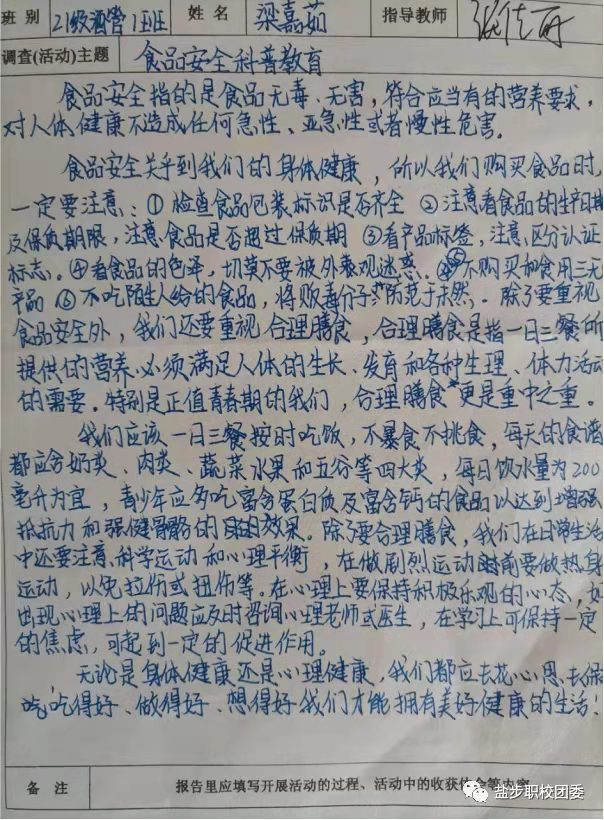 班 别 21级酒管1班 姓 名 梁嘉茹 指导教师
调查(活动)主题 食品安全科普教育
食品安全指的是食品无毒、无害，符合应当有的营养要求，
对人体健康不造成任何急性、亚急性或者慢性危害。
食品安全关乎到我们的身体健康，所以我们购买食品时，
一定要注意：①检查食品包装标识是否齐全 ②注意看食品的生产日期
及保质期限，注意食品是否超过保质期 ③看产品标签，注意区分认证
标志。④看食品的色泽，切莫不要被外表观迷惑。⑤不购买和食用三无
产品 ⑥不吃陌生人给的食品，将贩毒分子防范于未然。除了要重视
食品安全外，我们还要重视合理膳食，合理膳食是指一日三餐所
提供的营养必须满足人体的生长、发育和各种生理、体力活动
的需要。特别是正值青春期的我们，合理膳食更是重中之重。
我们应该一日三餐按时吃饭，不暴食不挑食，每天的食谱
都应含奶类、肉类、蔬菜水果和五谷等四大类，每日饮水量为200
毫升为宜，青少年应多吃富含蛋白质及富含钙的食品以达到增强
抵抗力和强健骨骼的效果。除了要合理膳食，我们在日常生活
中还要注意科学运动和心理平衡，在做剧烈运动前要做热身
运动，以免拉伤或扭伤等。在心理上要保持积极乐观的心态，如
出现心理上的问题应及时咨询心理老师或医生，在学习上可保持一定
的焦虑，可起到一定的促进作用。
无论是身体健康还是心理健康，我们都应去花心思去保
吃，吃得好、做得好、想得好我们才能拥有美好健康的生活！
备 注 报告里应填写开展活动的过程、活动中的收获体会等内容
盐步职校团委